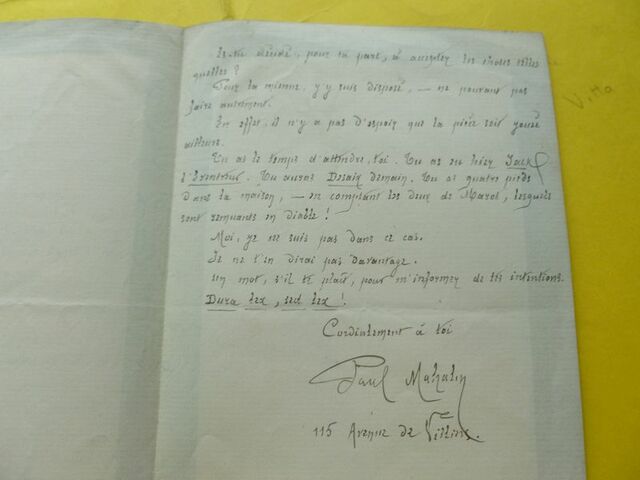 Es-tu décidé, pour ta part, à accepter les choses telles
quelles ?
Pour la mienne, j'y suis disposé, — ne pouvant pas
faire autrement.
En effet, il n'y a pas d'espoir que la pièce soit jouée
ailleurs.
Tu as le temps d'attendre, toi. Tu as eu hier Jack
l'Éventreur. Tu auras Desaix demain. Tu as quatre pieds
dans la maison, — en comptant les deux de Marot, lesquels
sont remuants en diable !
Moi, je ne suis pas dans ce cas.
Je ne t'en dirai pas davantage.
Un mot, s'il te plaît, pour m'informer de tes intentions.
Dura lex, sed lex !
Cordialement à toi
Paul Mahalin
115 Avenue de Villiers.